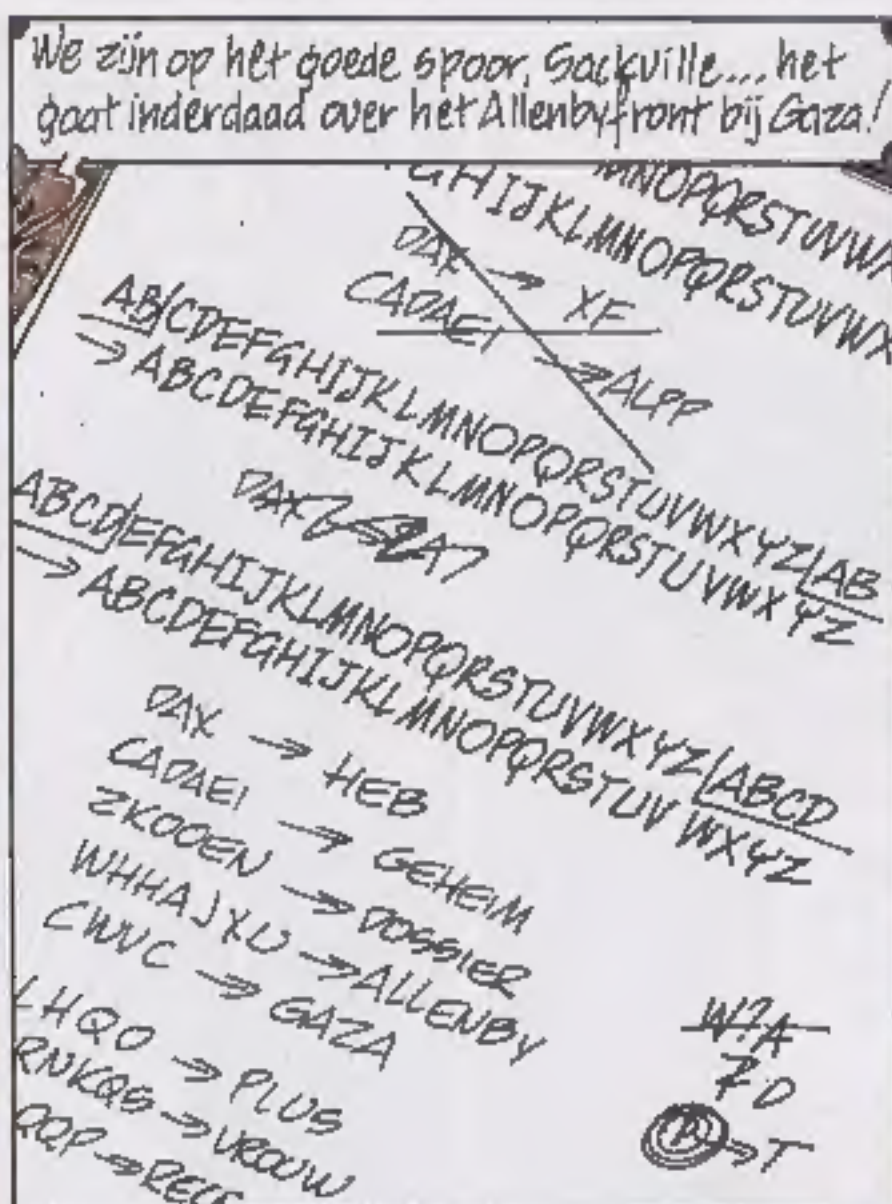 We zijn op het goede spoor, Sackville... het
gaat inderdaad over het Allenbyfront bij Gaza!
MNOPQRSTUVWX
GHIJKLMNOPQRSTUVWX
DAX → XF
CADAEI → ALPP
AB/CDEFGHIJKLMNOPQRSTUVWXYZ/AB
→ ABCDEFGHIJKLMNOPQRSTUVWXYZ
DAX
ABCD/EFGHIJKLMNOPQRSTUVWXYZ/ABCD
→ ABCDEFGHIJKLMNOPQRSTUVWXYZ
DAX → HEB
CADAEI → GEHEIM
ZKOOEN → DOSSIER
WHHAJXU → ALLENBY
CWVC → GAZA
LHQO → PLUS
RNKQS → VROUW
W?A
Z D
P → T